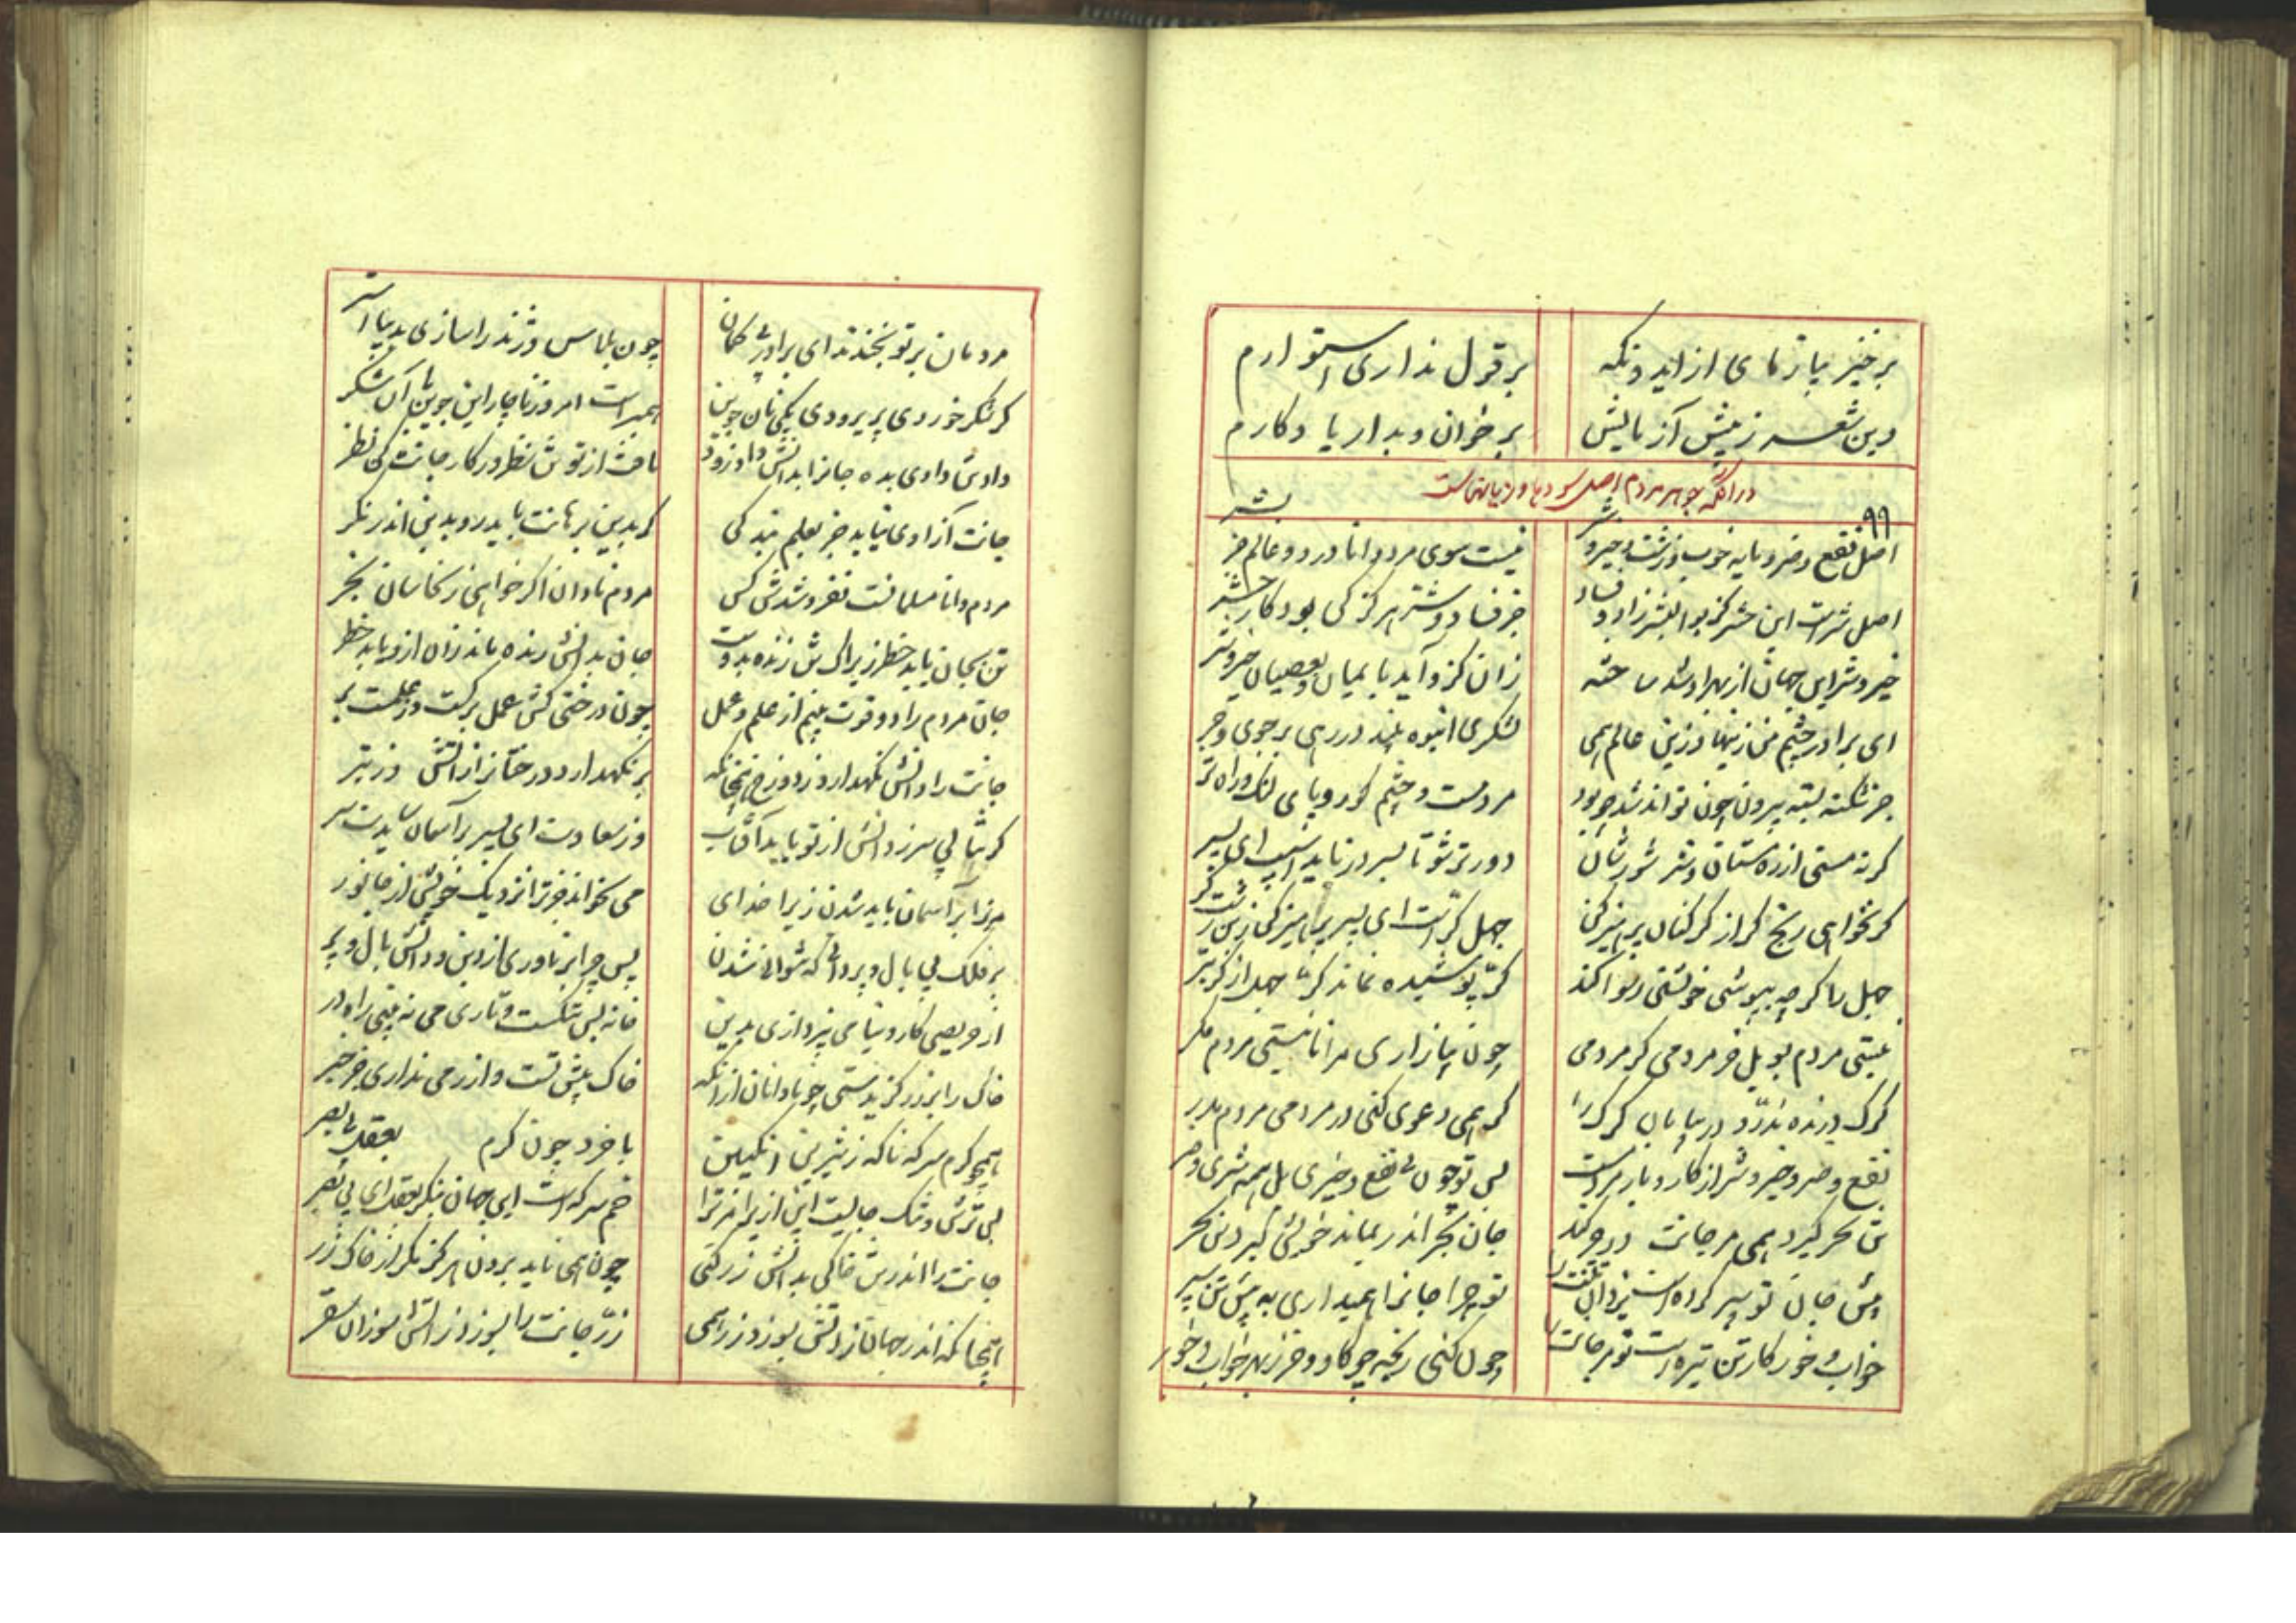 برخیز بیازمای از ایدونکه بر قول نداری استوارم
وین شعر ز پیش آزمایش برخوان و بدار یادگارم
در آنکه جوهر مردم اصل سودها و زیانهاست
۹۹
اصل نفع و ضر و مایه خوب و زشت و خیر و شر نیست سوی مرد دانا در دو عالم جز بشر
اصل شر است این حشر کز بوالبشر زاد و فساد جز فساد و شر هرگز کی بود کار حشر
خیر و شر این جهان از بهر او شد ساخته زان کزو آید بایمان و بعصیان خیر و شر
ای برادر چشم من زینها و زین عالم همی لشکری انبوه بیند در رهی پر جوی و جر
جز شکسته بسته بیرون چون تواند شد چو بود مرد مست و چشم کور و پای لنگ و راه تر
گر نه مستی از ره مستان و شر و شورشان دورتر شو تا بسر درناید اسپ ای پسر
گر نخواهی رنج گر از گرگنان پرهیز کن جهل گر است ای پسر پرهیز کن زین زشت گر
جهل را گرچه بپوشی خویشتن رسوا کند گر پوشیده نماند گرچه جهل از گر بتر
نیستی مردم بویل خر مردمی گر مردمی چون بیازاری مرا نیستی مردم مگر
گرگ درنده ندرد در بیابان گرگ را گر همی دعوی کنی در مردمی مردم مدر
نفع و ضر و خیر و شر از کار و بار مردمست پس تو چون بی نفع و خیری بل همه شری و ضر
تن سحر گیرد همی مر جانت در وی کند جان سحر اندر بماند خویش گیرد تن سحر
پیش جان تو سپر کرده است یزدان تنت را تو چرا جانرا همیداری به پیش تن سپر
خواب و خور کار تن تیره است تو مر جانت را چون کنی رنجه چو گاو و خر ز بهر خواب و خور
مردمان بر تو بخندند ای برادر بی گمان چون پلاس ژنده را سازی بدیبا آستر
گر شکر خوردی پریر و دی یکی نان جوین همبر است امروز ناچار این جوین با آن شکر
داد تن دادی بده جانرا بدانش داد زود یافت از تو تن نظر در کار جانت کن نظر
جانت آزادی نیابد جز بعلم بندگی گر بدین برهانت باید رو بدین اندر نگر
مردم دانا مسلمانست نفروشدش کس مردم نادان اگر خواهی ز نخاسان بخر
تن بجان یابد خطر زیراکه تن زنده بدوست جان بدانش زنده ماند زان ازو یابد خطر
جان مردم را دو قوت بینم از علم و عمل چون درختی کش عمل برگست و ز علمست بر
جانت را دانش نگهدارد ز دوزخ همچنانکه بر نگهدارد درختانرا ز آتش وز تبر
گر شتابی سر ز دانش از تو یابد آفتاب وز سعادت ای پسر بر آسمان سایدت سر
مر ترا بر آسمان باید شدن زیرا خدای می نخواند جز ترا نزدیک خویش از جانور
بر فلک بی بال و پر دانی که نتوانی شدن پس چرا بر ناوری از دین و دانش بال و پر
از حریصی کار دنیا می نپردازی بدین خانه بس تنگست و تاری می نه بینی راه در
خاک را بر زر گزیدستی چو نادانان ازانکه خاک پیش تست و از زر می نداری جز خبر
همچو کرم سرکه ناگه ز شیرین انگبین با خرد چون کرم بعقل بی بصر
بس ترش و تنگ جایست این ازیرا مر ترا خم سرکه است این جهان بنگر بعقل ای بی بصر
جانت را اندر تن خاکی بدانش زر کنی چون همی ناید برون هرگز مگر از خاک زر
همچنانکه اندر جهان آتش نسوزد زر همی زر جانت را نسوزد آتش سوزان سقر